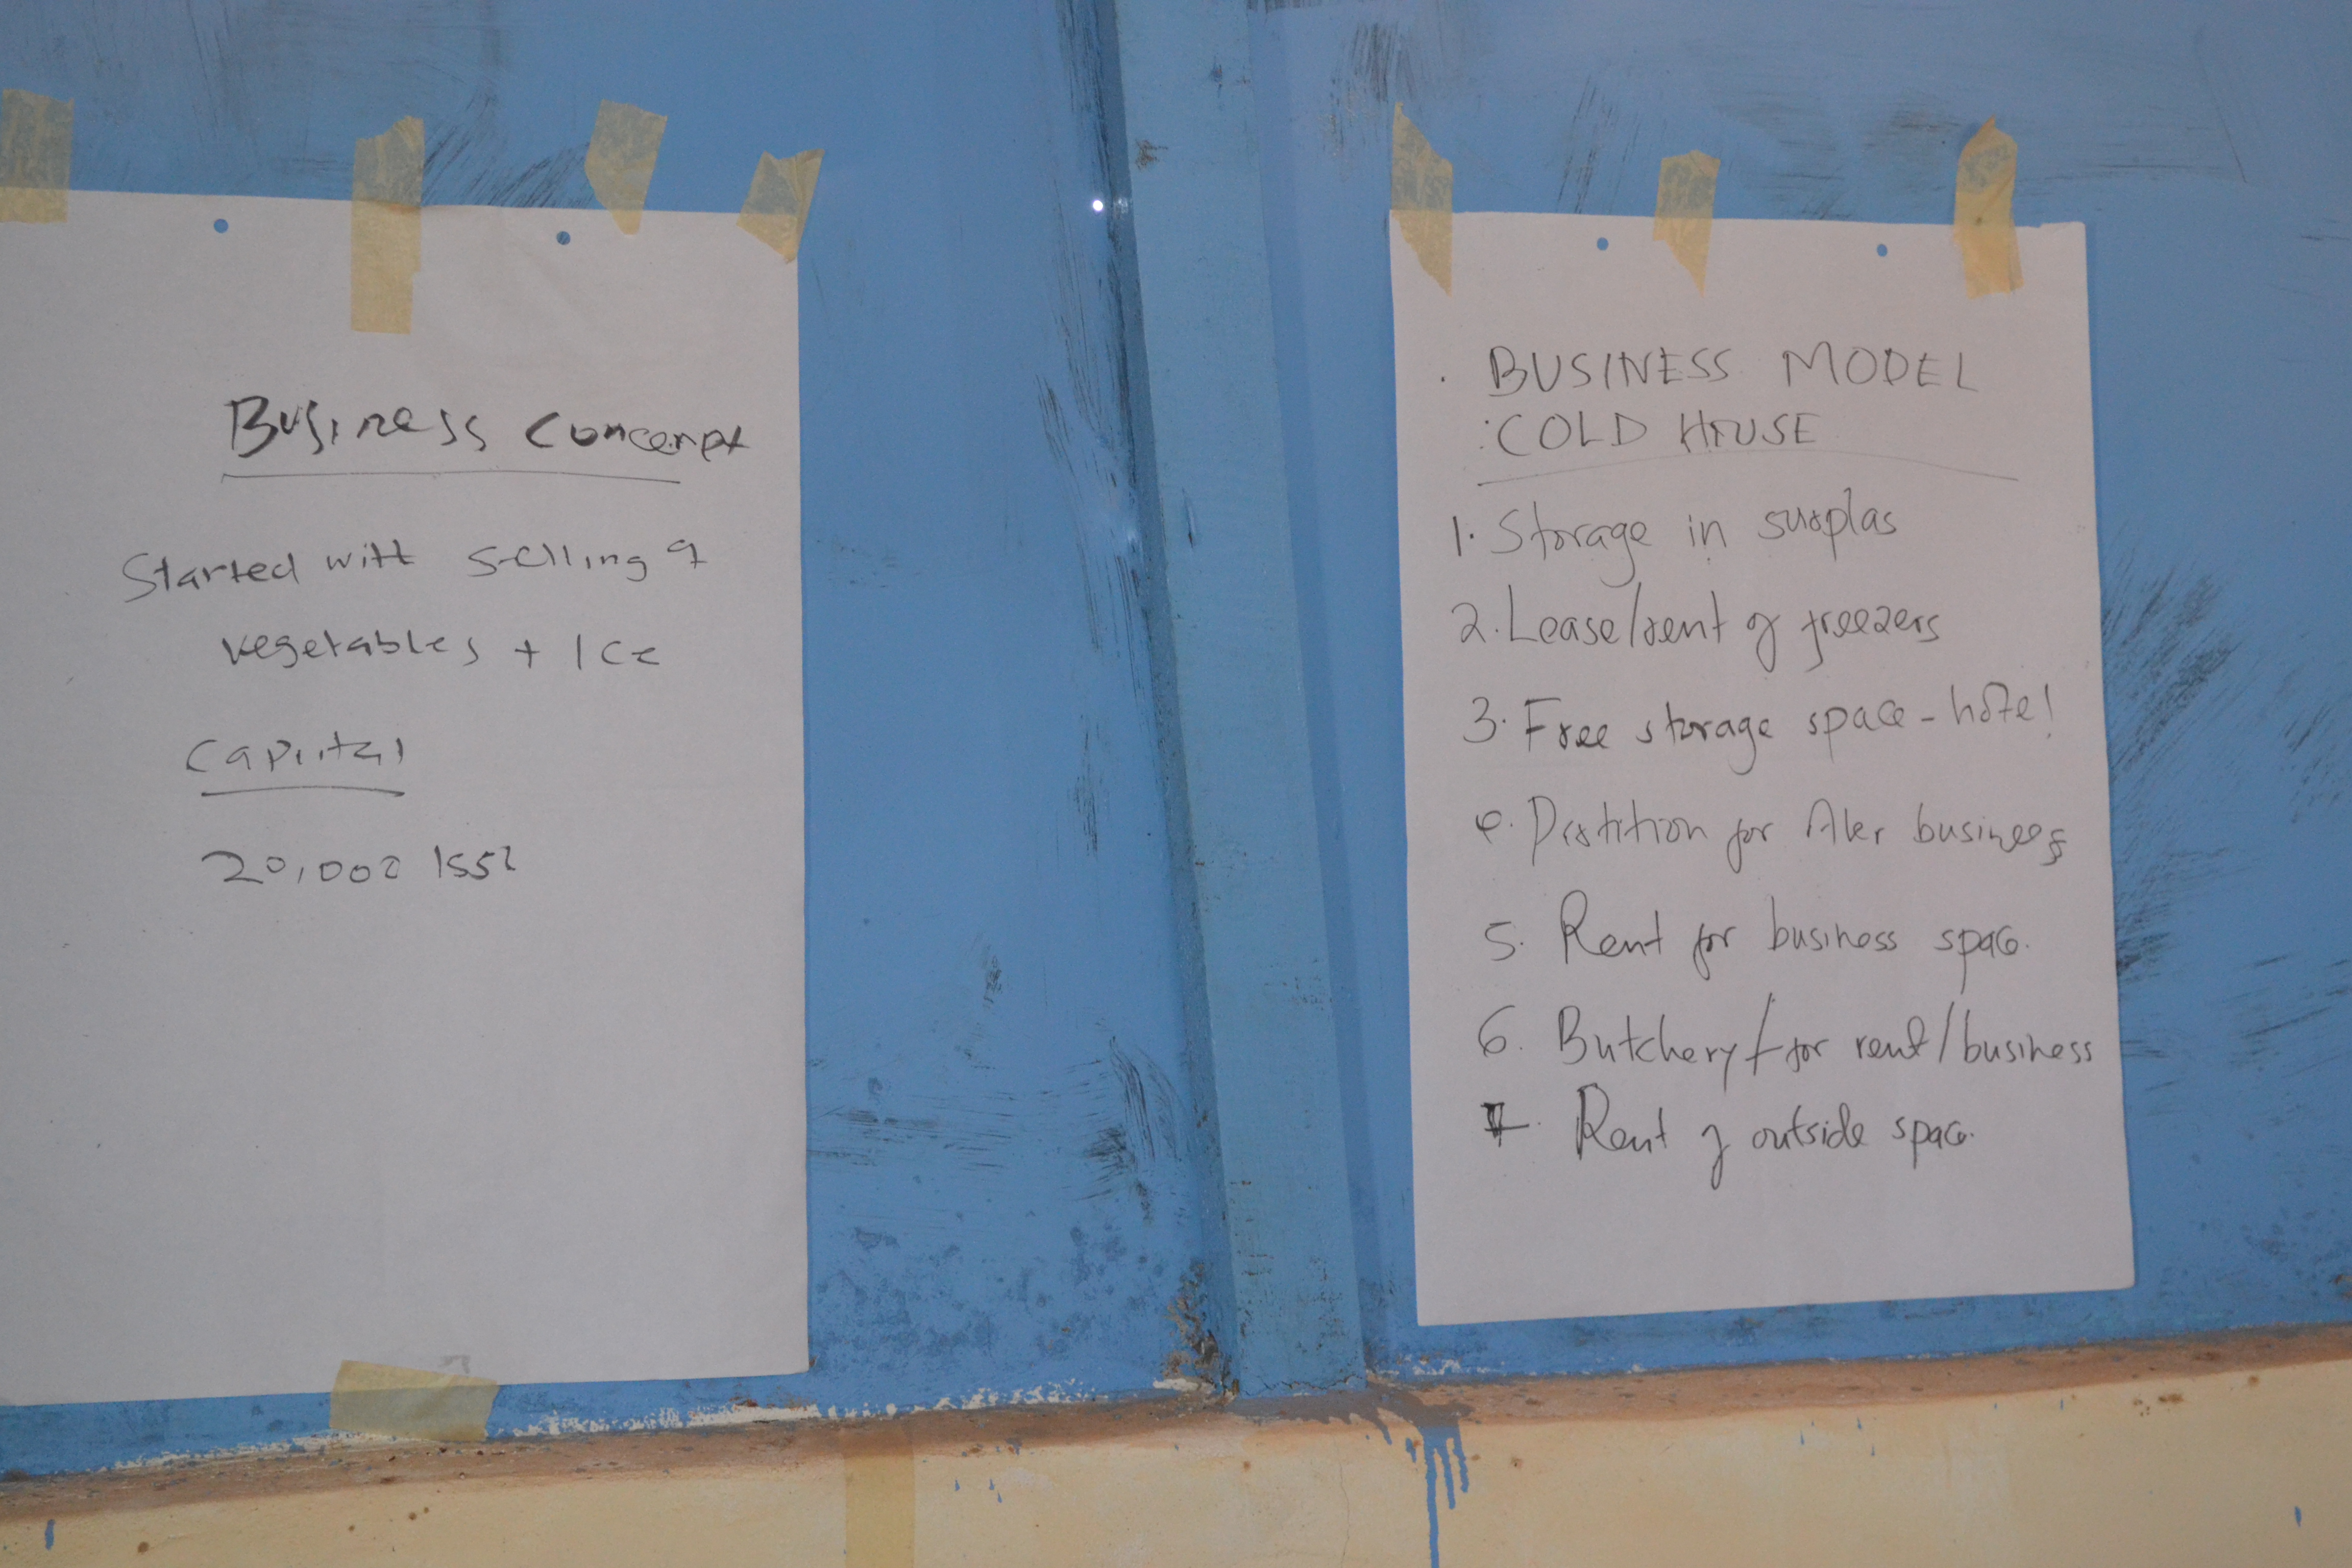 Business Concept
Started with selling of
vegetables + Ice
Capital
20,000
BUSINESS MODEL
: COLD HOUSE
1. Storage in surplas
2. Lease/rent of freezers
3. Free storage space - hotel
4. Partition for business
5. Rent for business space.
6. Butchery / for rent/business
7. Rent of outside space.